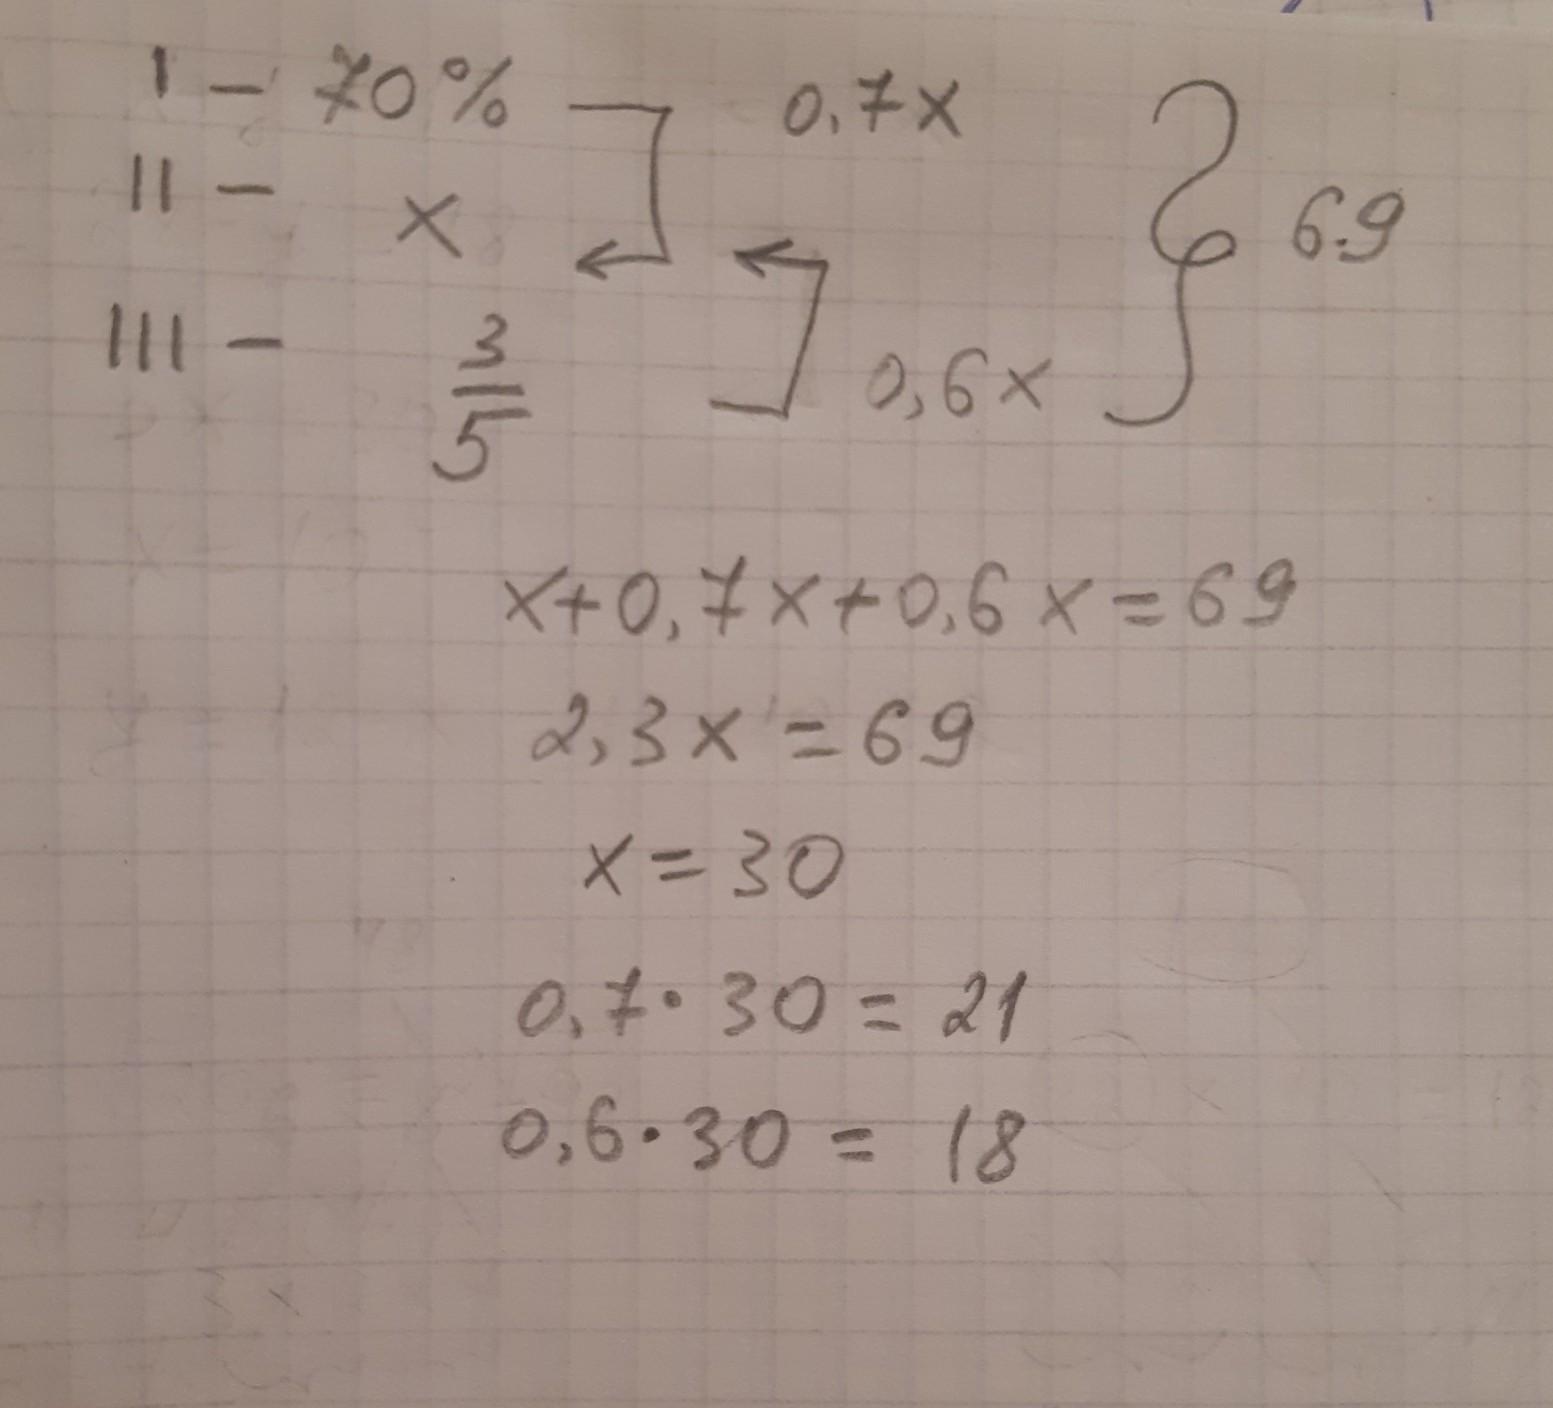 I – 70% 0,7x
II – x 69
III – 3/5 0,6x
x+0,7x+0,6x=69
2,3x=69
x=30
0,7·30=21
0,6·30=18